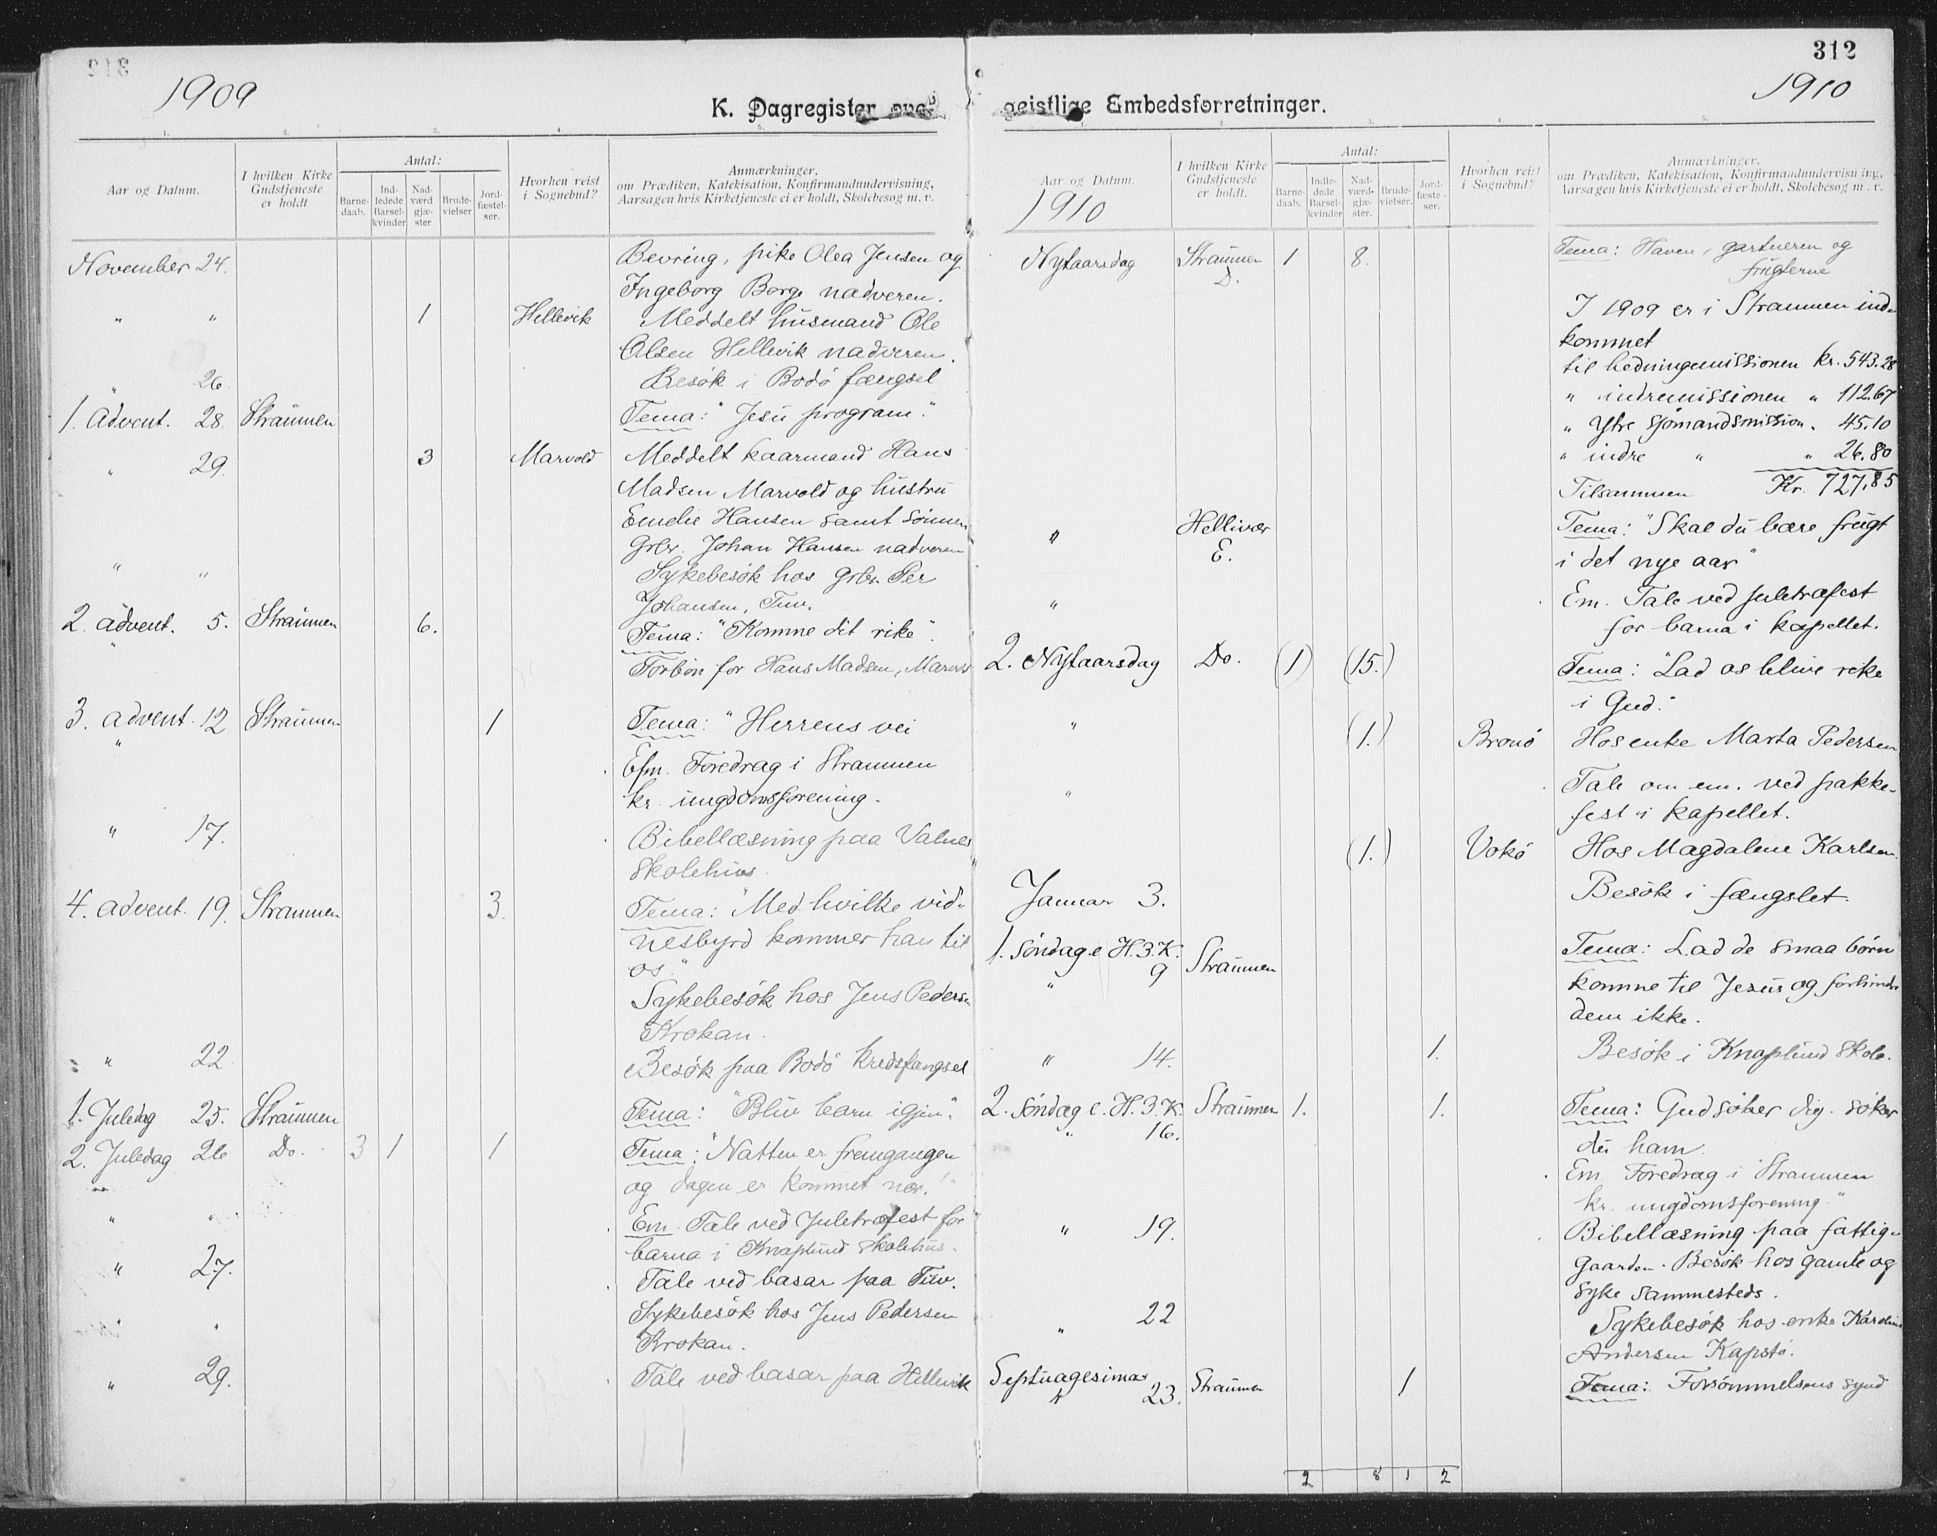 1909
K. Dagregister
Aar og Datum.
I hvilken Kirke
Gudstjeneste
er holdt
Antal:
Barne-
daab.
Ind-
ledede
Barsel-
kvinder
Nad-
værd
gjæ-
ster
Brude-
vielser
Jord-
fæstel-
ser.
Hvorhen reist
i Sognebud?
Anmærkninger.
om Prædiken, Katekisation, Konfirmandundervisning,
Aarsagen hvis Kirketjeneste ei er holdt, Skolebesøg m. v.
November 24. Bevring, pike Olea Jensen og
Ingeborg Borge nadveren.
" " 1 Hellevik Meddelt husmand Ole
Olsen Hellevik nadveren.
" 26. Besök i Bodö fængsel
1. Advent. 28. Straumen Tema: "Jesu program."
" 29. 3 Marvold Meddelt kaarmand Hans
Madsen Marvold og hustru
Emelie Hansen samt sönnen
Grbr. Johan Hansen nadveren
" " Sykebesök hos Grbr. Per
Johansen, Tuv.
2. advent. 5. Straumen 6. Tema: "Komme dit rike".
" Forbön for Hans Madsen, Marvold
3. advent. 12 Straumen 1 Tema: "Herrens vei
" Efm. Foredrag i Straumen
kr. ungdomsforening.
" 17. Bibellæsning paa Valnes
skolehus.
4. advent. 19. Straumen 3. Tema: "Med hvilke vid-
nesbyrd kommer han til
os."
Sykebesök hos Jens Pedersen
Krokan.
" 22. Besök paa Bodö kredsfængsel
1. Juledag 25. Straumen Tema: "Bliv barn igjen".
2. Juledag 26 Do. 3 1 1 Tema: "Natten er fremgangen
og dagen er kommet nær!"
" " Em. Tale ved Juletræfest for
barna i Knaplund skolehus.
" 27. Tale ved basar paa Tuv.
" " Sykebesök hos Jens Pedersen
Krokan.
" 29. Tale ved basar paa Hellevik
312
1910
geistlige Embedsforretninger.
Aar og Datum.
1910
I hvilken Kirke
Gudstjeneste
er holdt.
Antal:
Barne-
daab.
Indle-
dede
Barsel-
kvinder
Nad-
værd-
gjæ-
ster.
Brude-
vielser.
Jord-
fæste-
ser.
Hvorhen reist
i Sognebud?
Anmærkninger.
om Prædiken, Katekisation, Konfirmandundervisning,
Aarsagen hvis Kirketjeneste ei er holdt, Skolebesøg m. v.
Nytaarsdag Straumen 1 8. Tema: Haven, gartneren og
D. frugterne
I 1909 er i Straumen ind-
kommet
til hedningemissionen kr. 543.28
" indremissionen " 112.67
" Ytre sjömandsmission. 45.10
" indre " " 26.80
Tilsammen Kr. 727.85
" Hellivær Tema: "Skal du bære frugt
E. i det nye aar"
" Em. Tale ved juletræfest
for barna i kapellet.
2. Nytaarsdag Do. (1) (15.) Tema: "Lad os blive rike
i Gud."
" (1.) Bronö Hos enke Marta Pedersen
" Tale om em. ved pakke-
fest i kapellet.
(1.) Vokö Hos Magdalene Karlsen.
Januar 3. Besök i fængslet.
1. Söndag e. H. 3. K. Straumen Tema: Lad de smaa börn
" 9 komme til Jesus og forhindre
dem ikke.
" 14. 1. Besök i Knaplund skole.
2. Söndag e. H. 3. K. Straumen 1. 1. Tema: Gud söker dig. söker
" 16. du ham.
Em. Foredrag i Straumen
kr. ungdomsforening."
" 19. Bibellæsning paa fattig-
gaarden. Besök hos gamle og
syke sammesteds.
" 22 Sykebesök hos enke Karoline
Andersen Kapstö.
Septuagesima 23. Straumen 1 Tema: Forsömmelsens synd
2 8 1 2